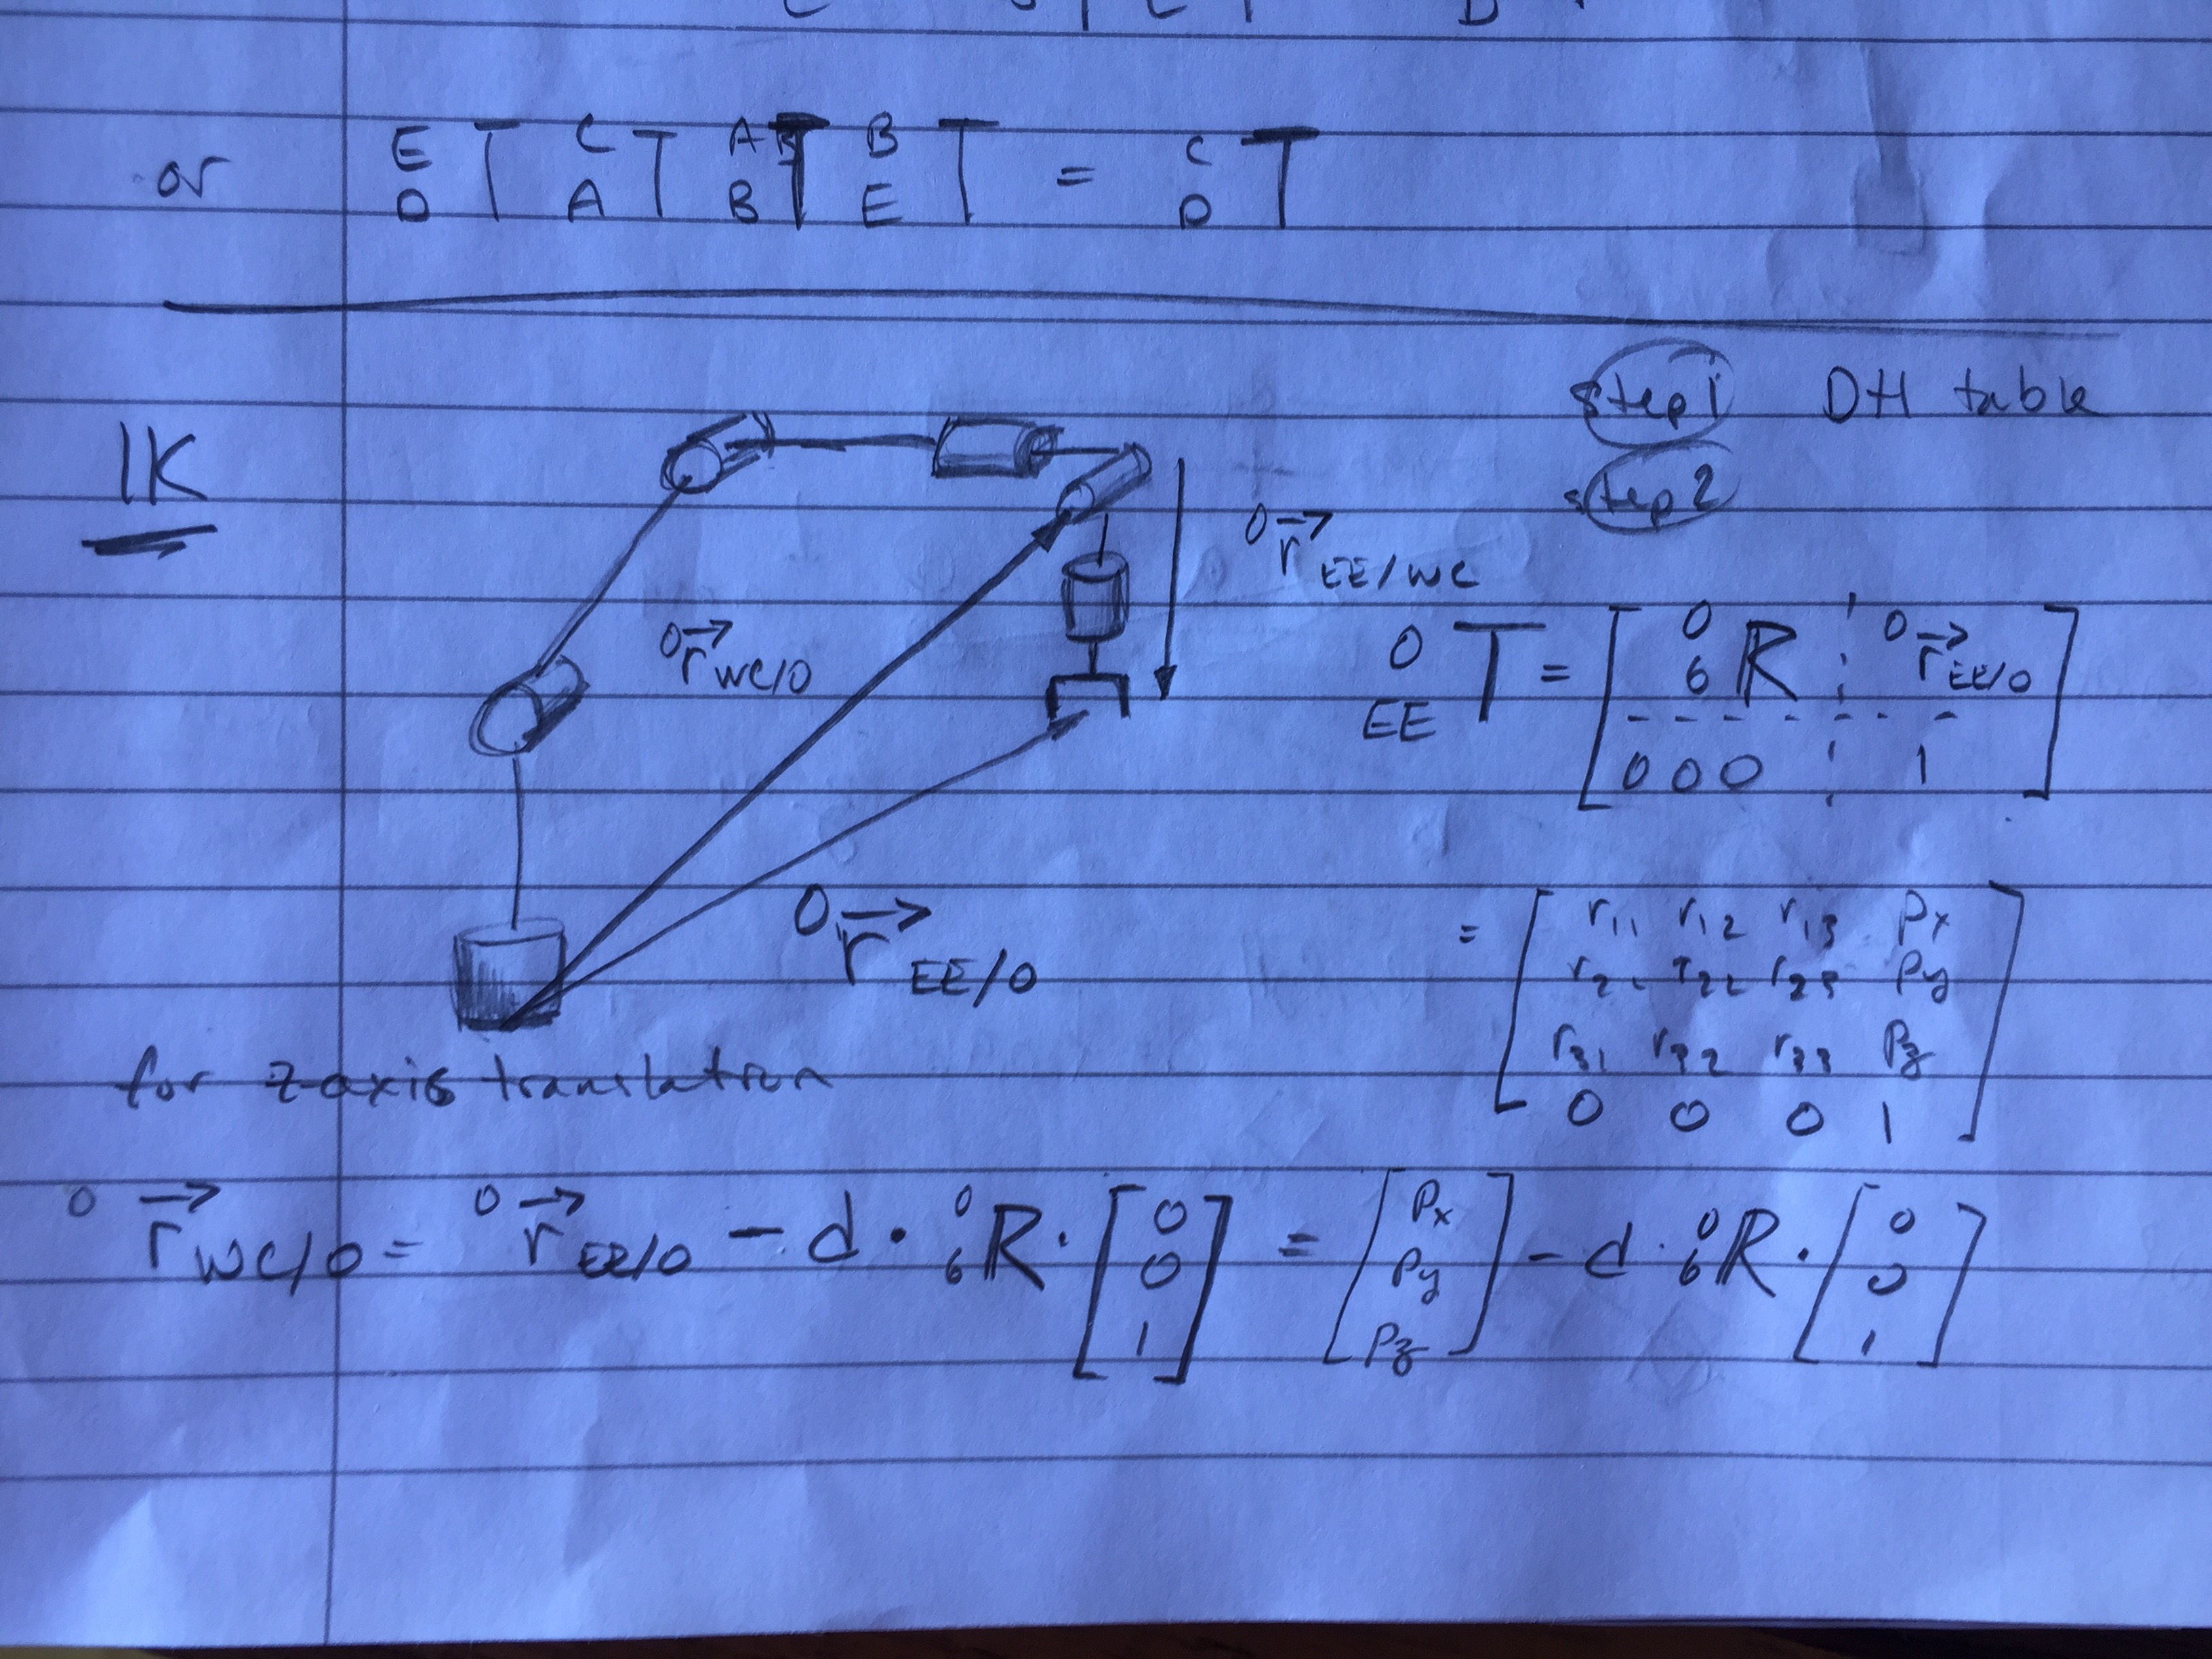 or E D T C A T A B T B E T = C D T
step 1 DH table
IK
step 2
0 r EE/WC
0 r WC/0
0 EE T = [ 0 6 R 0 r EE/0
0 0 0 1 ]
0 r EE/0
= [ r11 r12 r13 Px
r2 r22 r23 Py
r31 r32 r33 Pz
0 0 0 1 ]
for z axis translation
0 r WC/0 = 0 r EE/0 - d · 0 6 R · [ 0 0 1 ] = [ Px Py Pz ] - d · 0 6 R · [ 0 0 1 ]